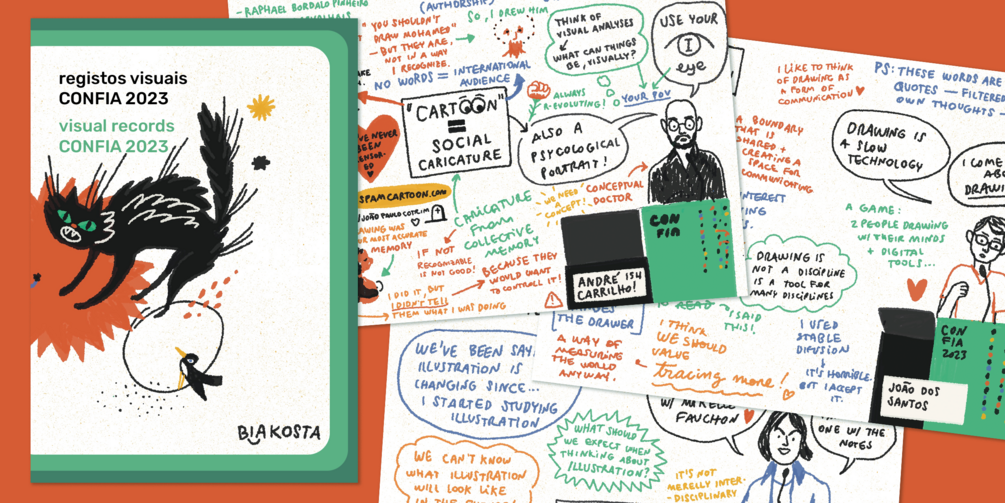 registos visuais
CONFIA 2023
visual records
CONFIA 2023
BIA KOSTA
- RAPHAEL BORDALO PINHEIRO
(AUTHORSHIP)
SO, I DREW HIM
"YOU SHOULDN'T
DRAW MOHAMED"
- BUT THEY ARE,
NOT IN A WAY
I RECOGNIZE.
NO WORDS = INTERNATIONAL
AUDIENCE
THINK OF
VISUAL ANALYSES
WHAT CAN THINGS
BE, VISUALLY?
USE YOUR
I
eye
ALWAYS
R-EVOLUTING!
YOUR POV
"CARTOON"
=
SOCIAL
CARICATURE
ALSO A
PSYCOLOGICAL
PORTRAIT!
I'VE NEVER
BEEN
SPAMCARTOON.COM
JOÃO PAULO COTRIM
DRAWING WAS
OUR MOST ACCURATE
MEMORY
CARICATURE
FROM
COLLECTIVE
MEMORY
IF NOT
RECOGNIZABLE
IS NOT GOOD!
BECAUSE THEY
WOULD WANT
TO CONTROLL IT!
I DID IT, BUT
I DIDN'T TELL
THEM WHAT I WAT DOING
WE NEED
A CONCEPT!
CONCEPTUAL
DOCTOR
CON
FIA
ANDRÉ
CARRILHO!
I LIKE TO THINK
OF DRAWING AS
A FORM OF
COMMUNICATION
PS: THESE WORDS ARE
QUOTES - FILTERED
OWN THOUGHTS -
A BOUNDARY
THAT IS
SHARED +
CREATING A
SPACE FOR
COMMUNICATING
DRAWING IS
A SLOW
TECHNOLOGY
I COME
DRAW
A GAME:
2 PEOPLE DRAWING
W/ THEIR MINDS
+ DIGITAL
TOOLS...
DRAWING IS
NOT A DISCIPLINE
IS A TOOL FOR
MANY DISCIPLINES
I SAID
THIS!
THE DRAWER
A WAY OF
MEASURING
THE WORLD
ANYWAY.
I THINK
WE SHOULD
VALUE
tracing more!
I USED
STABLE
DIFUSION
IT'S HORRIBLE.
BUT I ACCEPT
IT.
CON
FIA
2023
JOÃO DOS
SANTOS
WE'VE BEEN SAY
ILLUSTRATION IS
CHANGING SINCE...
I STARTED STUDYING
ILLUSTRATION
W/ MIREILLE
FAUCHON
ONE W/ THE
NOTES
WHAT SHOULD
WE EXPECT WHEN
THINKING ABOUT
ILLUSTRATION?
WE CAN'T KNOW
WHAT ILLUSTRATION
WILL LOOK LIKE
IT'S NOT
MERELLY INTER-
-DISCIPLINARY